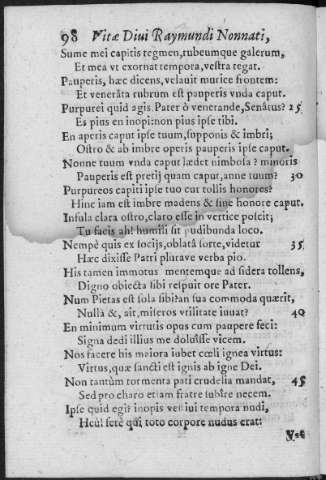 98 Vitæ Diui Raymundi Nonnati,
Sume mei capitis tegmen, rubeumque galerum,
Et mea vt exornat tempora, vestra tegat.
Pauperis, hæc dicens, velauit murice frontem:
Et venerāta rubrum est pauperis vnda caput.
Purpurei quid agis Pater ò venerande, Senâtus? 25
Es pius en inopi: non pius ipse tibi.
En aperis caput ipse tuum, supponis & imbri;
Ostro & ab imbre operis pauperis ipse caput.
Nonne tuum vnda caput lædet nimbosa? minoris
Pauperis est pretij quam caput, anne tuum? 30
Purpureos capiti ipse tuo cur tollis honores?
Hinc iam est imbre madens & sine honore caput.
Insula clara ostro, claro esse in vertice poscit;
Tu facis ah! humili sit pudibunda loco.
Nempè quis ex socijs, oblatâ sorte, videtur 35
Hæc dixisse Patri plurave verba pio.
His tamen immotus mentemque ad sidera tollens,
Digno obiecta sibi respuit ore Pater.
Num Pietas est sola sibi? an sua commoda quærit,
Nullâ &, ait, miseros vtilitate iuuat? 40
En minimum virtutis opus cum paupere feci:
Signa dedi illius me doluisse vicem.
Nos facere his maiora iubet cœli ignea virtus:
Virtus, quæ sancti est ignis ab igne Dei.
Non tantùm tormenta pati crudelia mandat, 45
Sed pro charo etiam fratre subire necem.
Ipse quid egi? inopis vestiui tempora nudi,
Heu! ferè qui toto corpore nudus erat: